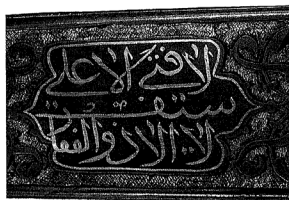 لا فتى الا على
لا سيف الا ذو الفقار